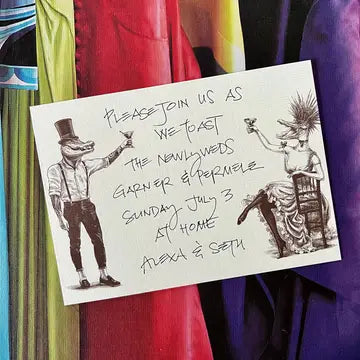 PLEASE JOIN US AS
WE TOAST
THE NEWLYWEDS
GARNER & PERMELE
SUNDAY JULY 3
AT HOME
ALEXA & SETH